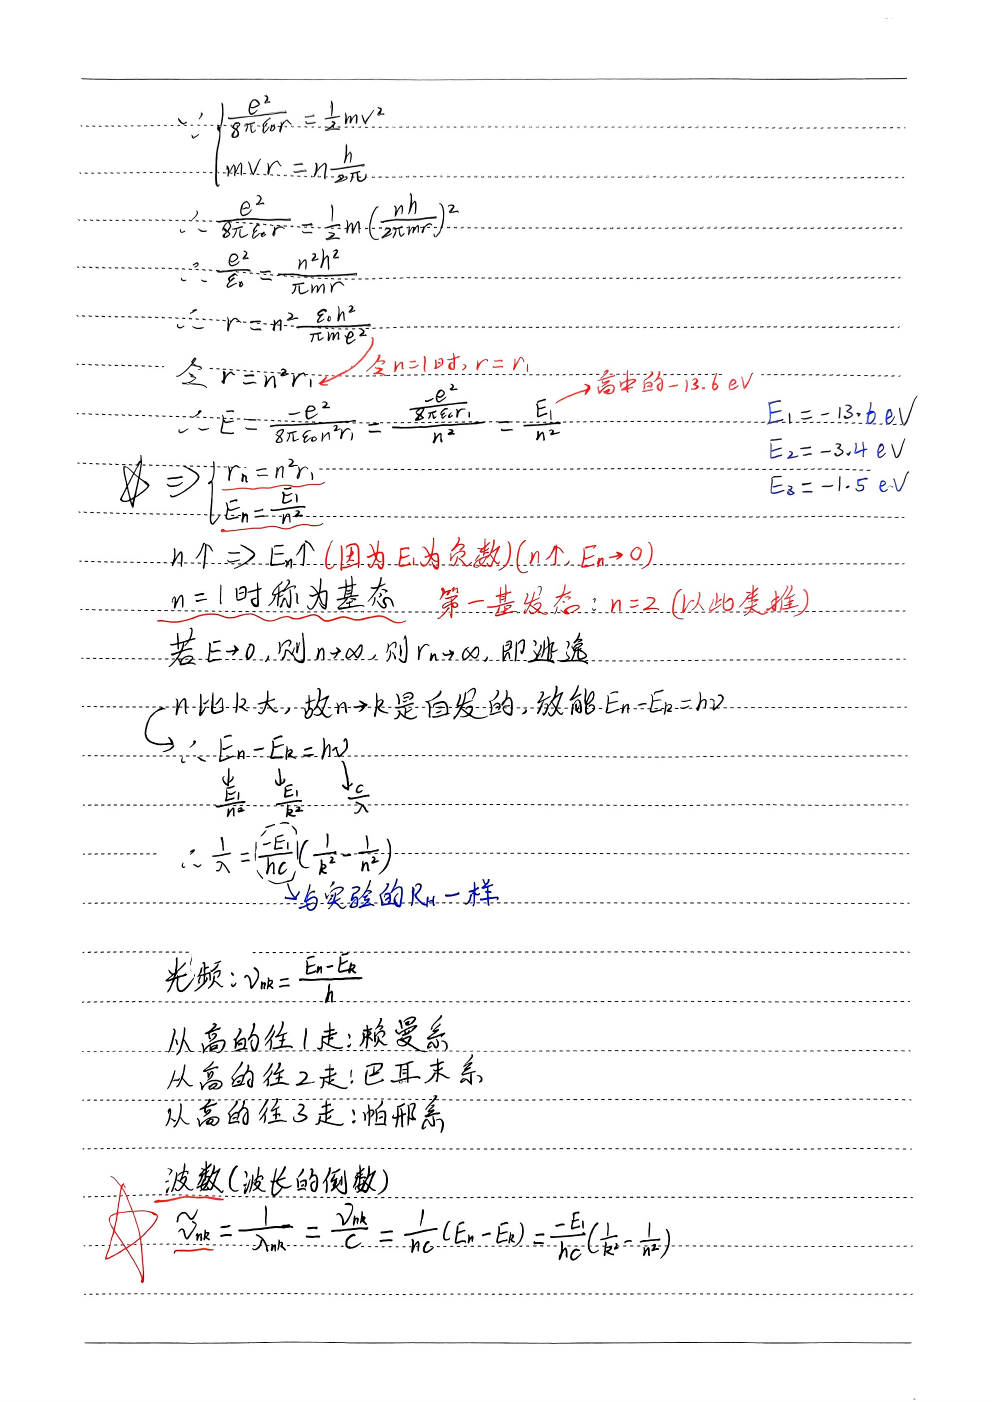 ∵ { e²/(8πε₀r) = ½mv²
mvr = n h/2π
∴ e²/(8πε₀r) = ½m(nh/2πmr)²
∴ e²/ε₀ = n²h²/πmr
∴ r = n² ε₀h²/πme²
令 r = n²r₁ 令n=1时, r = r₁
→高中的-13.6 eV
∴ E = -e²/(8πε₀n²r₁) = (-e²/8πε₀r₁)/n² = E₁/n²
E₁ = -13.6 eV
E₂ = -3.4 eV
E₃ = -1.5 eV
☆ ⇒ { rₙ = n²r₁
Eₙ = E₁/n²
n↑ ⇒ Eₙ↑ (因为E₁为负数)(n↑, Eₙ→0)
n=1时称为基态 第一基发态: n=2 (以此类推)
若E→0, 则n→∞, 则rₙ→∞, 即逃逸
n比k大, 故n→k是自发的, 放能Eₙ-Eₖ=hν
∴ Eₙ-Eₖ=hν
↓ ↓ ↓
E₁/n² E₁/k² c/λ
∴ 1/λ = -E₁/hc (1/k² - 1/n²)
→与实验的R_H一样
光频: νₙₖ = (Eₙ-Eₖ)/h
从高的往1走: 赖曼系
从高的往2走: 巴耳末系
从高的往3走: 帕邢系
波数(波长的倒数)
☆ ν̃ₙₖ = 1/λₙₖ = νₙₖ/c = 1/hc (Eₙ-Eₖ) = -E₁/hc (1/k² - 1/n²)